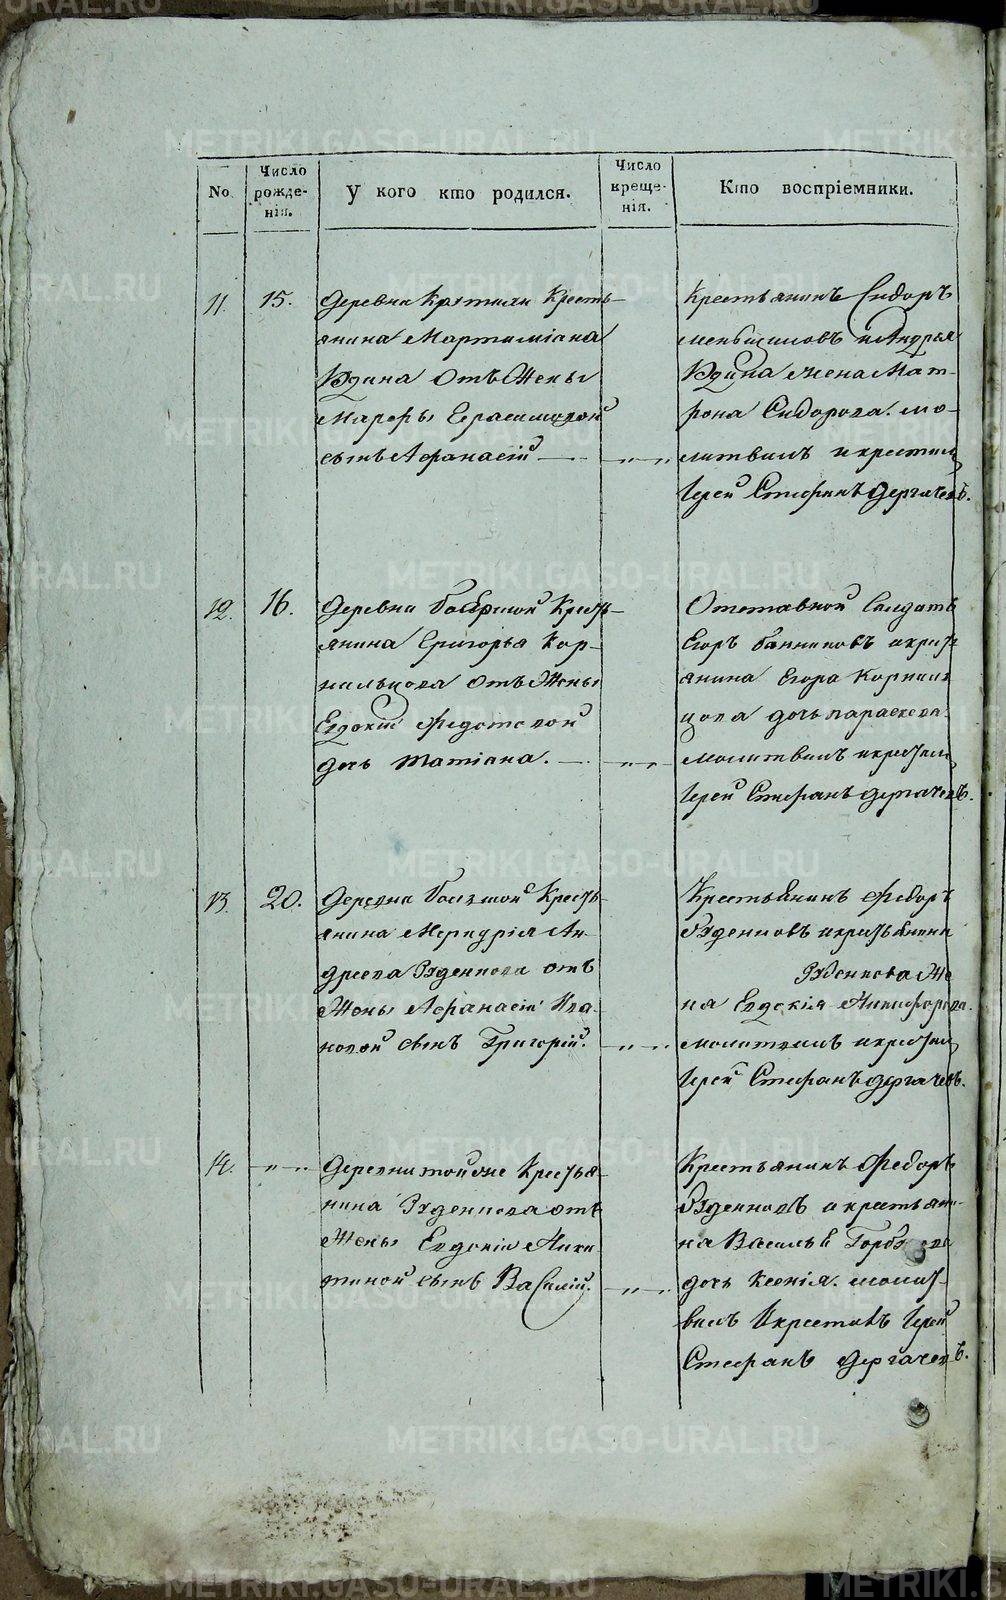 No.
Число рожде- нія.
У кого кто родился.
Число креще- нія.
Кто воспріемники.
11.
15.
Деревни Крутихи Кресть-
янина Мартиміана
Юдина отъ Жены
Марфы Герасимовой
сынъ Афанасій
Крестьянинъ Сидоръ
Меньшиковъ и Андрея
Юдина жена Мат-
рона Сидорова. мо-
литвилъ и крестилъ
Іерей Стефанъ Дергачевъ.
12.
16.
Деревни Большой Кресть-
янина Григорья Кор-
нильцова отъ Жены
Евдокіи Федотовой
дочь Татіана.
Отставной Солдатъ
Егоръ Банниковъ и крест
янина Егора Корниль
цова дочь Параскева.
молитвилъ и крестилъ
Іерей Стефанъ Дергачевъ.
13.
20.
Деревни Большой Кресть-
янина Меркурія Ан-
дреева отъ
Жены Афанасіи Ива-
новой сынъ Григорій.
Крестьянинъ Федоръ
и крестьянина
Же
на Евдокія Никифорова.
молитвилъ и крестилъ
Іерей Стефанъ Дергачевъ.
14.
Деревни той же Крестья-
нина отъ
Жены Евдокіи Ники-
тиной сынъ Василій.
Крестьянинъ Федоръ
и крестьяни-
на Василья
дочь Ксенія. молит-
вилъ и крестилъ Іерей
Стефанъ Дергачевъ.
METRIKI.GASO-URAL.RU